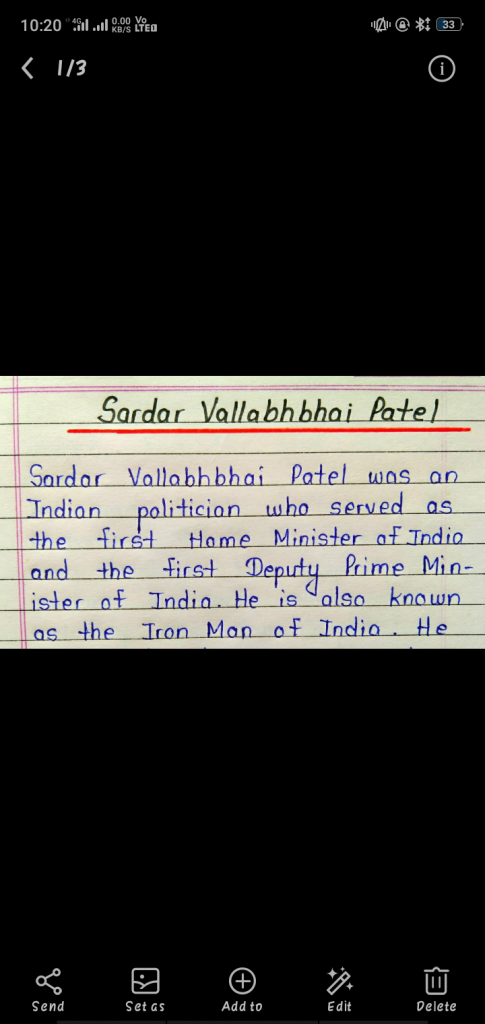 10:20 4G 0.00 KB/S Vo LTE 33
1/3
Sardar Vallabhbhai Patel
Sardar Vallabhbhai Patel was an
Indian politician who served as
the first Home Minister of India
and the first Deputy Prime Min-
ister of India. He is also known
as the Iron Man of India. He
Send Set as Add to Edit Delete